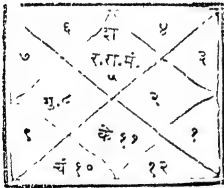 ६ श ४
७ र. रा. मं. ३
५
गु. ८ २
९ के ११ १
चं १० १२